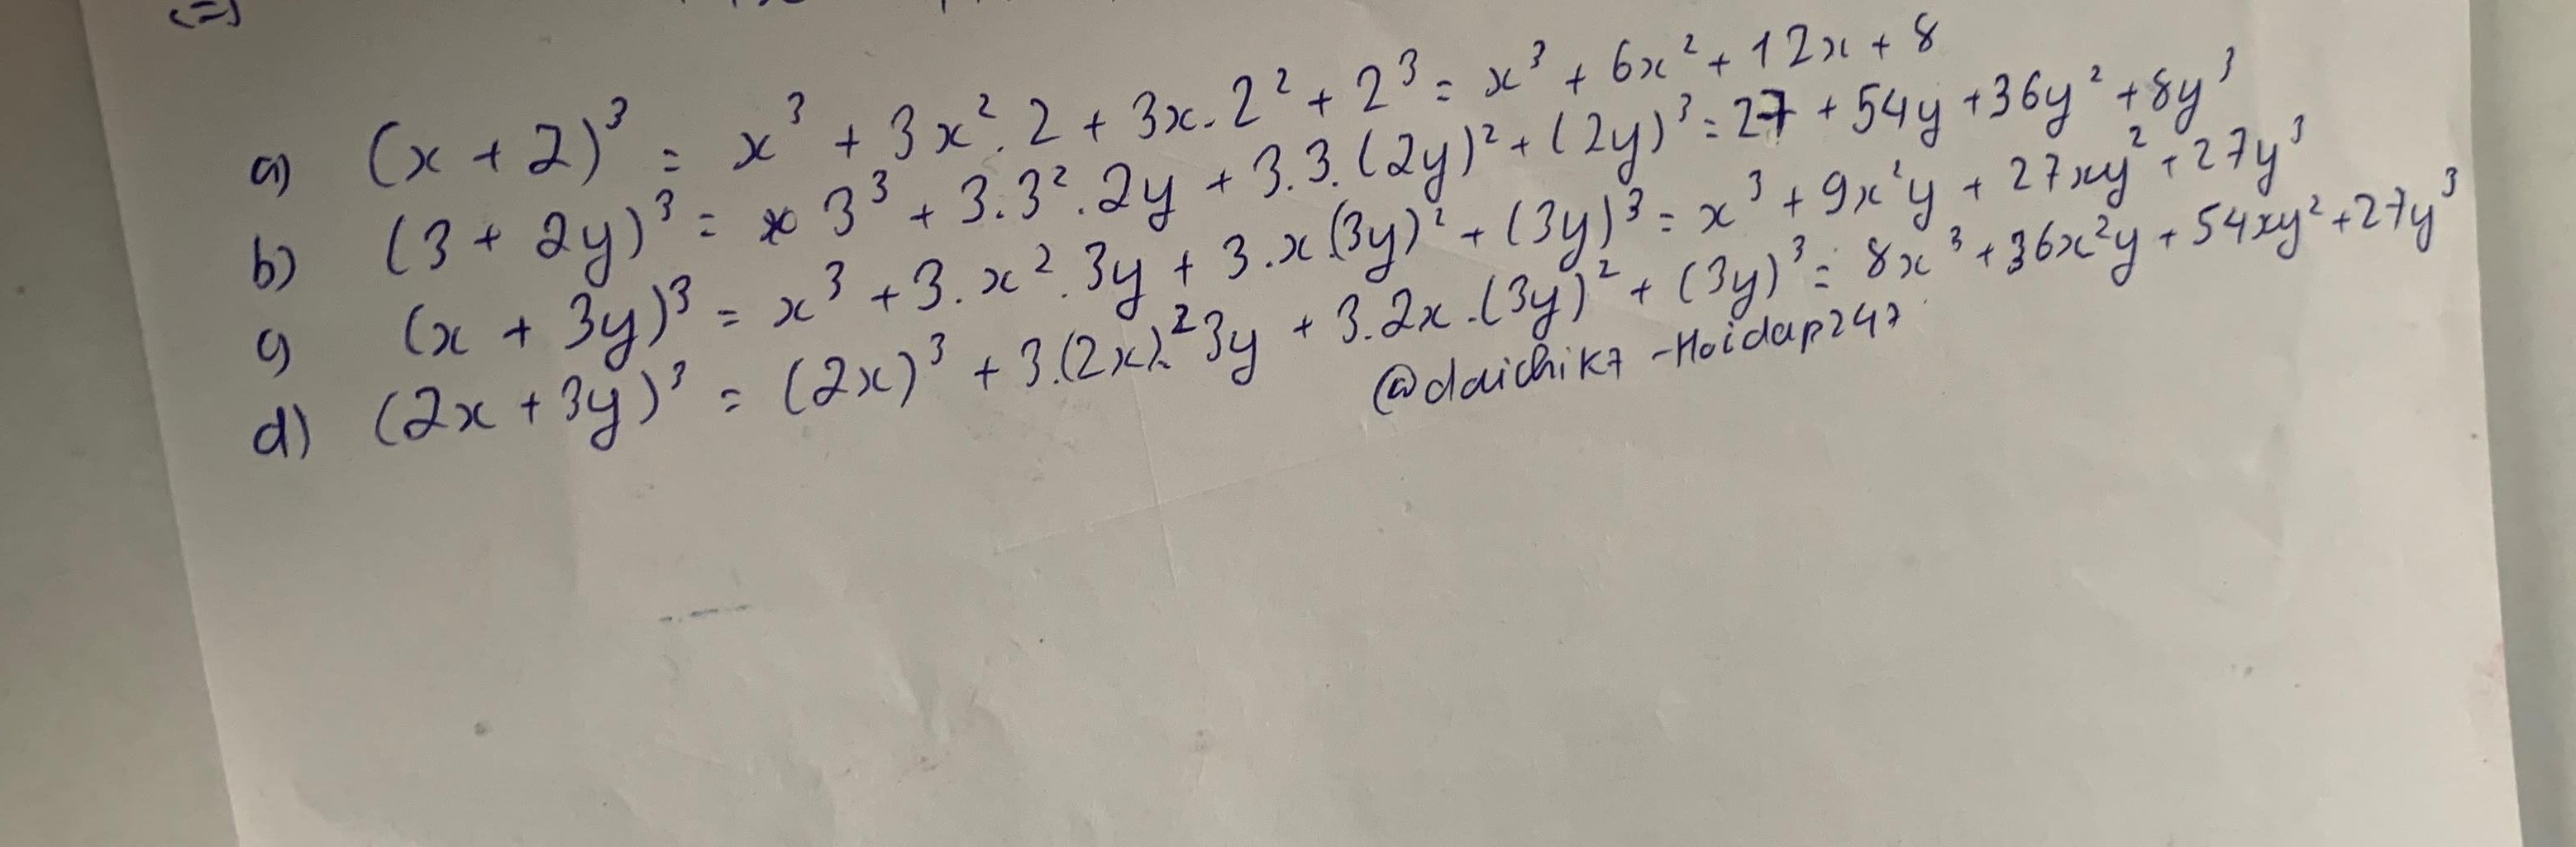 (=)
a) (x + 2)³ = x³ + 3x².2 + 3x.2² + 2³ = x³ + 6x² + 12x + 8
b) (3 + 2y)³ = 3³ + 3.3².2y + 3.3.(2y)² + (2y)³ = 27 + 54y + 36y² + 8y³
c) (x + 3y)³ = x³ + 3.x².3y + 3.x.(3y)² + (3y)³ = x³ + 9x²y + 27xy² + 27y³
d) (2x + 3y)³ = (2x)³ + 3.(2x).²3y + 3.2x.(3y)² + (3y)³ = 8x³ + 36x²y + 54xy² + 27y³
@daichik7 - Hoidap247